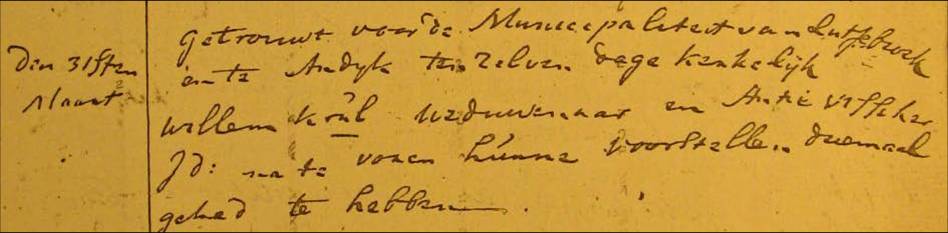 Den 31sten
Maart
getrouwt voor de Municipaliteit van Lutjebroek
en te Andyk ten zelven dage kerkelijk
willem kròl weduwenaar en Antie visscher
Jd: na te voren hùnne voorstellen driemaal
gehad te hebben.